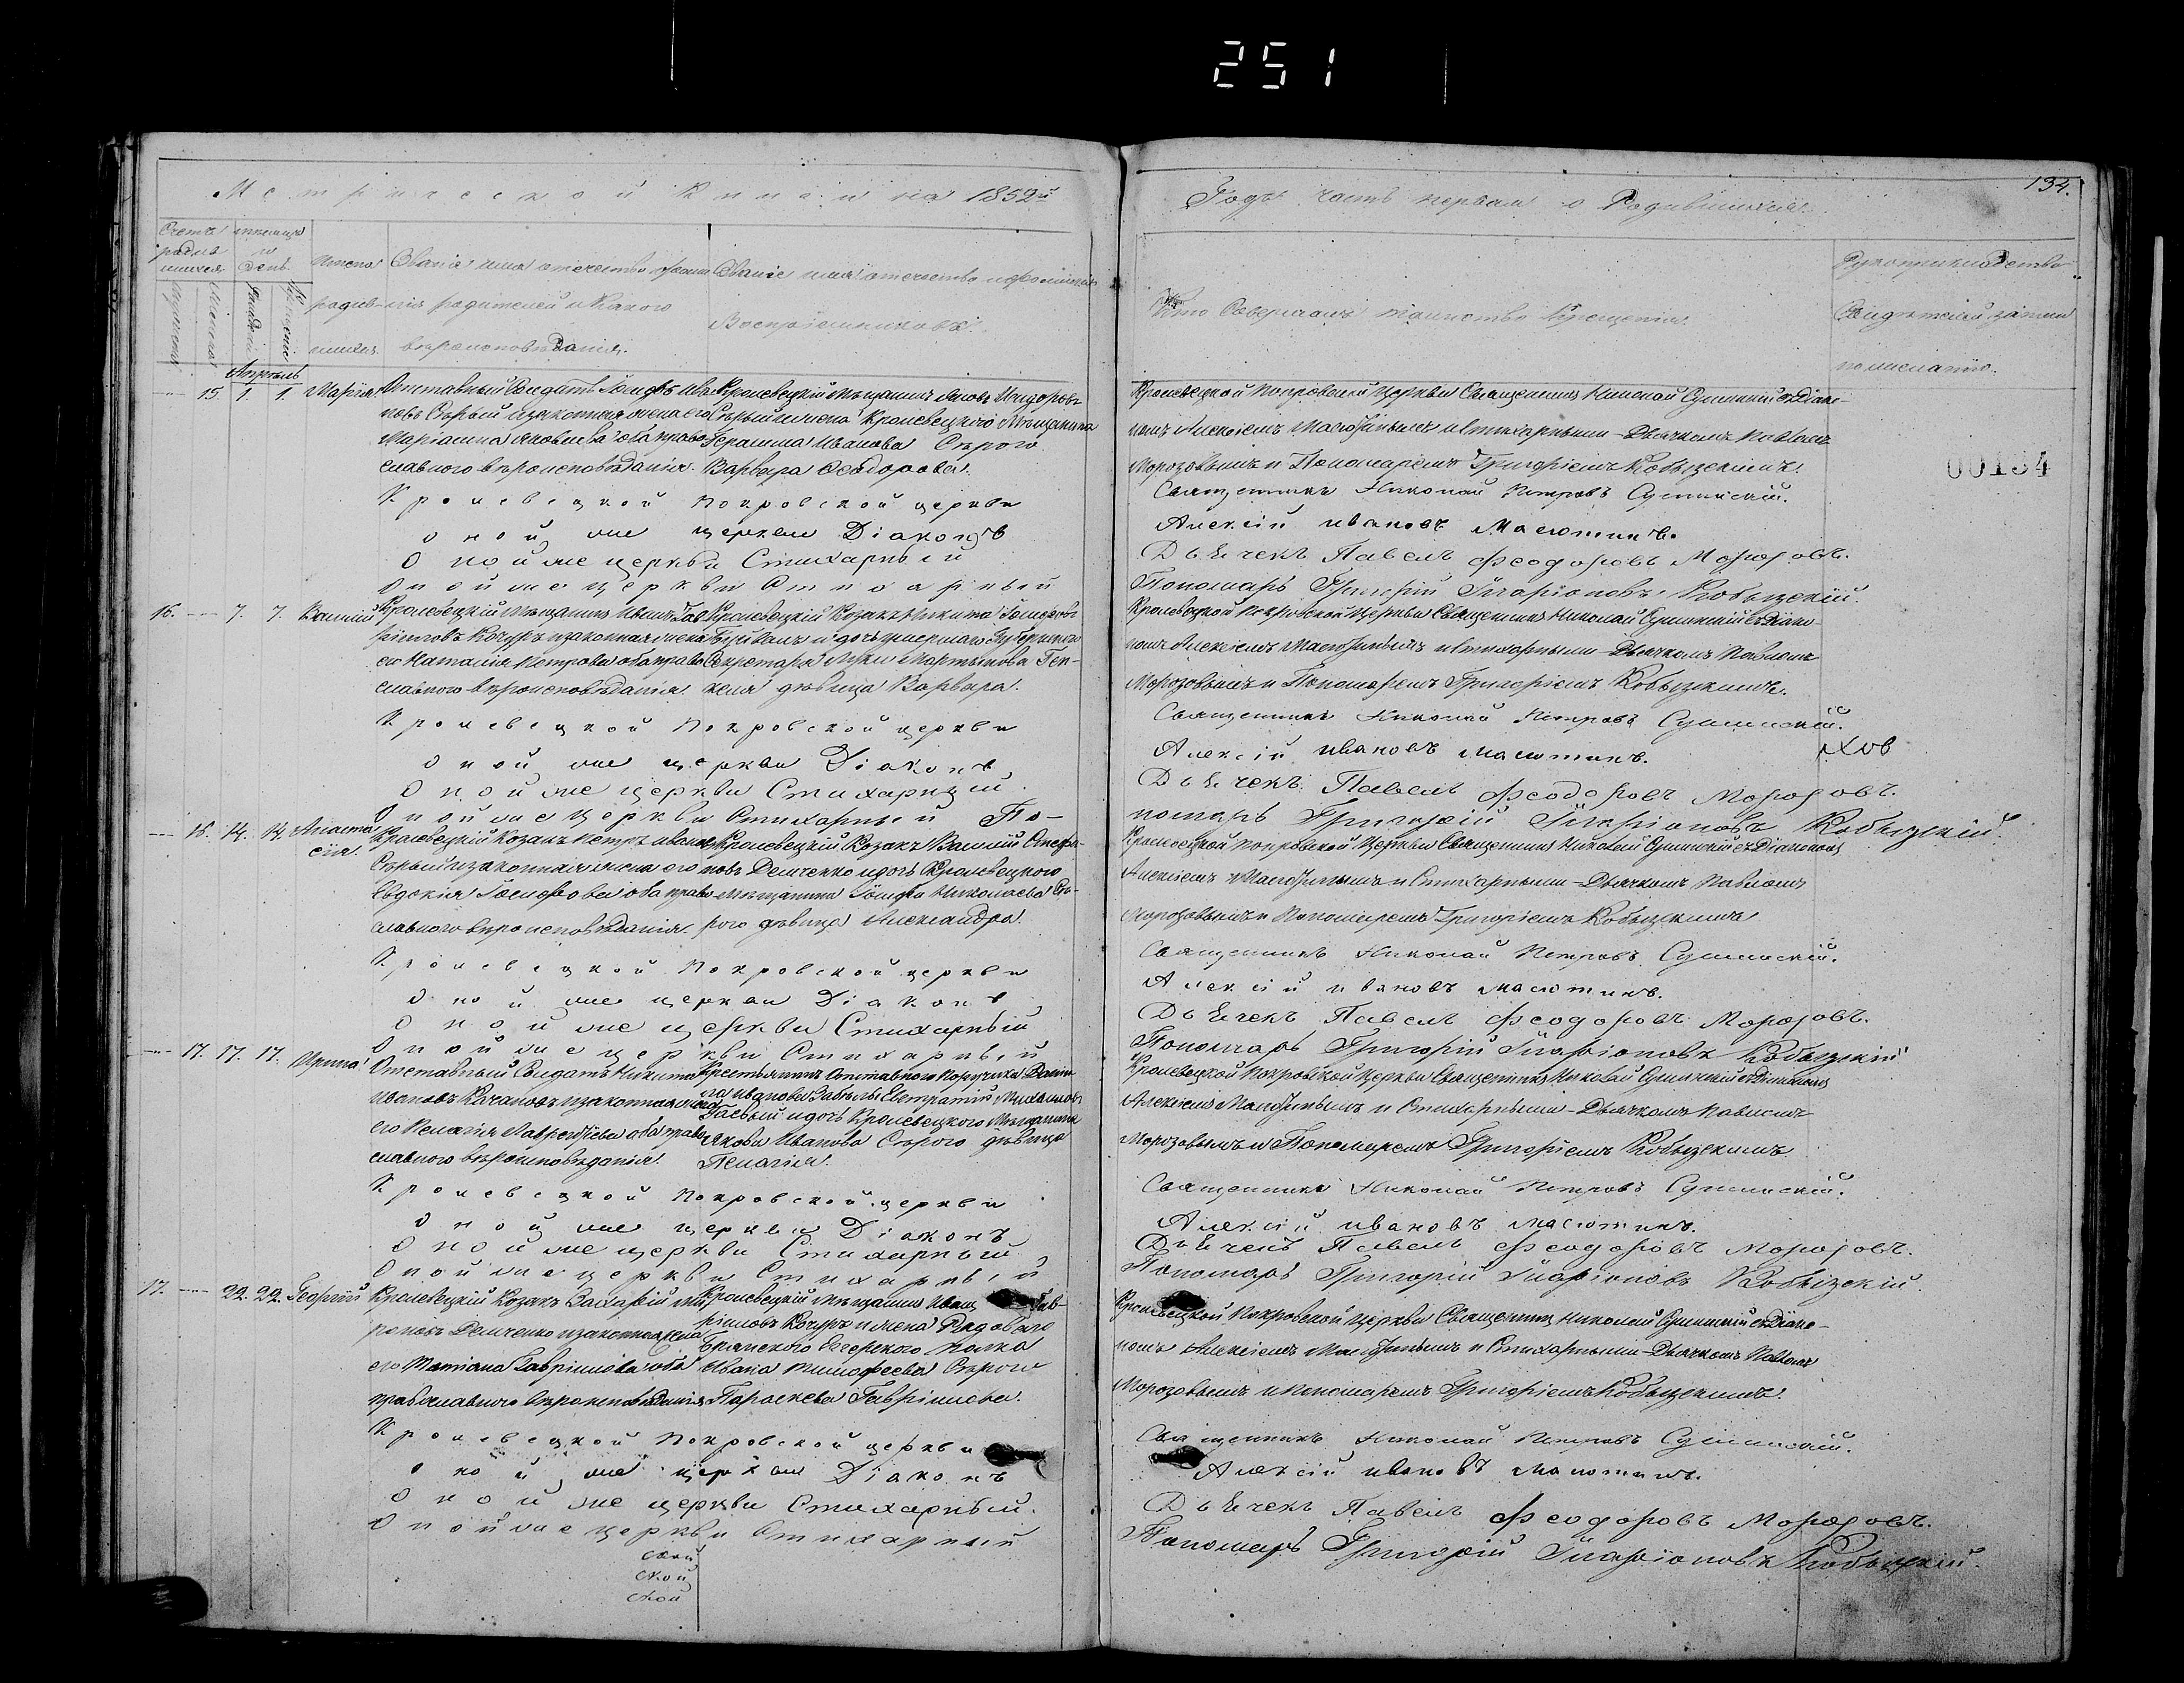 251
Метрической Книги на 1852й
Годъ часть первая о Родившихся.
134.
00134
Счетъ родившихся
мѣсяцъ и день
Имена родив-шихся.
Званіе имя отечество и фамилія родителей и Какого вѣроисповѣданія.
Званіе имя отечество и фамилія Воспріемниковъ.
Кто Совершалъ таинство Крещенія.
Рукоприкладство Свидѣтелей записи по желанію.
Апрѣль
15. 1. 1. Марія
Отставный Солдатъ Іосифъ Ива-
новъ Сѣрый и законная жена его
Маріанна Яковлева оба право-
славного вѣроисповѣданія.
Кролевецкій Мѣщанинъ Яковъ Исидоровъ
Сѣрый и жена Кролевецкого Мѣщанина
Герасима Иванова Сѣрого
Варвара Феодорова.
Кролевецкой Покровской Церкви Священникъ Николай Сушинскій съ Діако-
номъ Алексіемъ Масютинымъ и Стихарными - Дьячкомъ Павломъ
Морозовымъ и Пономаремъ Григоріемъ Кобызскимъ.
Кролевецкой Покровской церкви Священникъ Николай Петровъ Сушинскій.
оной же церкви Діаконъ Алексій Ивановъ Масютинъ.
Оной же церкви Стихарный Дьячекъ Павелъ Феодоровъ Морозовъ.
Оной же церкви Стихарный Пономарь Григорій Иларіоновъ Кобызскій.
16. 7. 7. Василій
Кролевецкій Мѣщанинъ Иванъ Гав-
ріиловъ Кочуръ и законная жена
его Наталія Петрова оба право-
славного вѣроисповѣданія.
Кролевецкій Козакъ Никита Іосифовъ
и дочь умершаго Губернского
Секретаря Луки Мартынова Ген-
дѣвица Варвара.
Кролевецкой Покровской Церкви Священникъ Николай Сушинскій съ Діако-
номъ Алексіемъ Масютинымъ и Стихарными - Дьячкомъ Павломъ
Морозовымъ и Пономаремъ Григоріемъ Кобызскимъ.
Кролевецкой Покровской церкви Священникъ Николай Петровъ Сушинскій.
оной же церкви Діаконъ Алексій Ивановъ Масютинъ.
Оной же церкви Стихарный Дьячекъ Павелъ Феодоровъ Морозовъ.
Оной же церкви Стихарный По-номарь Григорій Иларіоновъ Кобызскій.
16. 14. 14. Анаста-
сія.
Кролевецкій Козакъ Петръ Ивановъ
Сѣрый и законная жена его
Евдокія Іосифова оба право-
славного вѣроисповѣданія.
Кролевецкій Козакъ Василій Стефа-
новъ Демченко и дочь Кролевецкого
Мѣщанина Іосифа Николаева Сѣ-
рого дѣвица Александра.
Кролевецкой Покровской Церкви Священникъ Николай Сушинскій съ Діакономъ
Алексіемъ Масютинымъ и Стихарными - Дьячкомъ Павломъ
Морозовымъ и Пономаремъ Григоріемъ Кобызскимъ
Кролевецкой Покровской церкви Священникъ Николай Петровъ Сушинскій.
оной же церкви Діаконъ Алексій Ивановъ Масютинъ.
Оной же церкви Стихарный Дьячекъ Павелъ Феодоровъ Морозовъ.
Оной же церкви Стихарный Пономарь Григорій Иларіоновъ Кобызскій
17. 17. 17. Ирина
Отставный Солдатъ Никита
Ивановъ Качановъ и законная жена
его Пелагія Лаврентіева оба право-
славного вѣроисповѣданія.
Крестьянинъ Отставного Поручика Дани-
ла Иванова Евстратій Михайловъ
и дочь Кролевецкого Мѣщанина
Якова Иванова Сѣрого дѣвица
Пелагія.
Кролевецкой Покровской Церкви Священникъ Николай Сушинскій съ Діакономъ
Алексіемъ Масютинымъ и Стихарными - Дьячкомъ Павломъ
Морозовымъ и Пономаремъ Григоріемъ Кобызскимъ
Кролевецкой Покровской церкви Священникъ Николай Петровъ Сушинскій.
оной же церкви Діаконъ Алексій Ивановъ Масютинъ.
Оной же церкви Стихарный Дьячекъ Павелъ Феодоровъ Морозовъ.
Оной же церкви Стихарный Пономарь Григорій Иларіоновъ Кобызскій.
17. 22. 22. Георгій
Кролевецкій Козакъ Захарій Ми-
роновъ Демченко и законная жена
его Татіана Гавріилова оба
православного вѣроисповѣданія
Кролевецкій Мѣщанинъ Иванъ Гав-
ріиловъ Кочуръ и жена Рядового
Брянского Егерского полка
Ивана Тимофеева Сѣрого
Параскева Гавріилова.
Кролевецкой Покровской Церкви Священникъ Николай Сушинскій съ Діако-
номъ Алексіемъ Масютинымъ и Стихарными - Дьячкомъ Павломъ
Морозовымъ и Пономаремъ Григоріемъ Кобызскимъ.
Кролевецкой Покровской церкви Священникъ Николай Петровъ Сушинскій.
оной же церкви Діаконъ Алексій Ивановъ Масютинъ.
Оной же церкви Стихарный Дьячекъ Павелъ Феодоровъ Морозовъ.
Оной же церкви Стихарный Пономарь Григорій Иларіоновъ Кобызскій.
ской
ской
ской